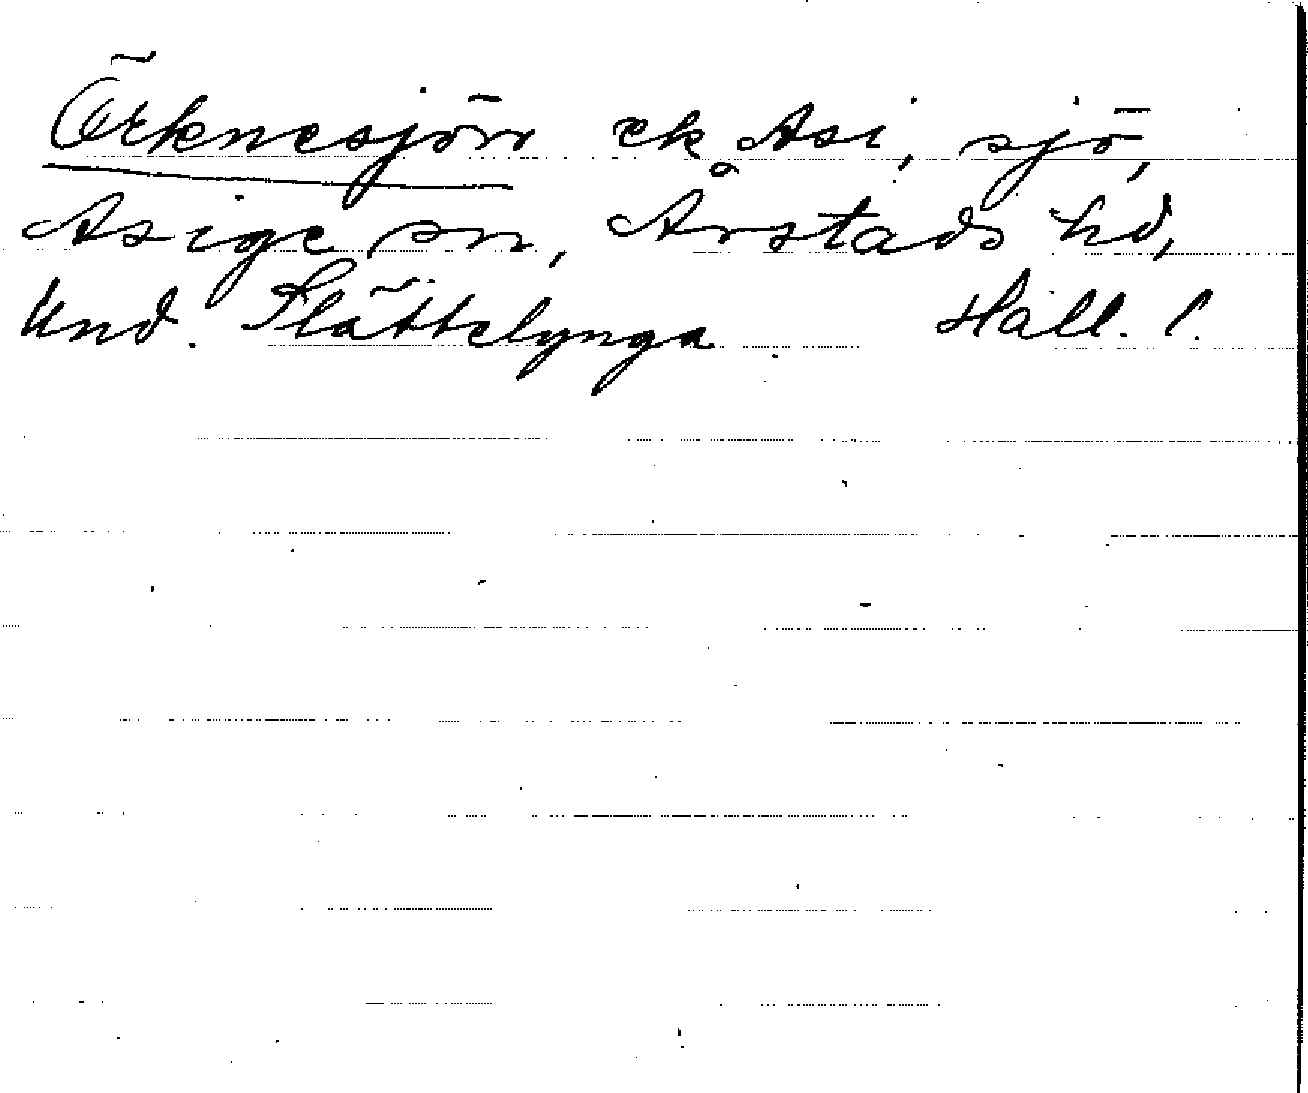 Örknesjön ek Asi, sjö,
Asige sn, Årstads hd,
Und. Slättelynga Hall. l.